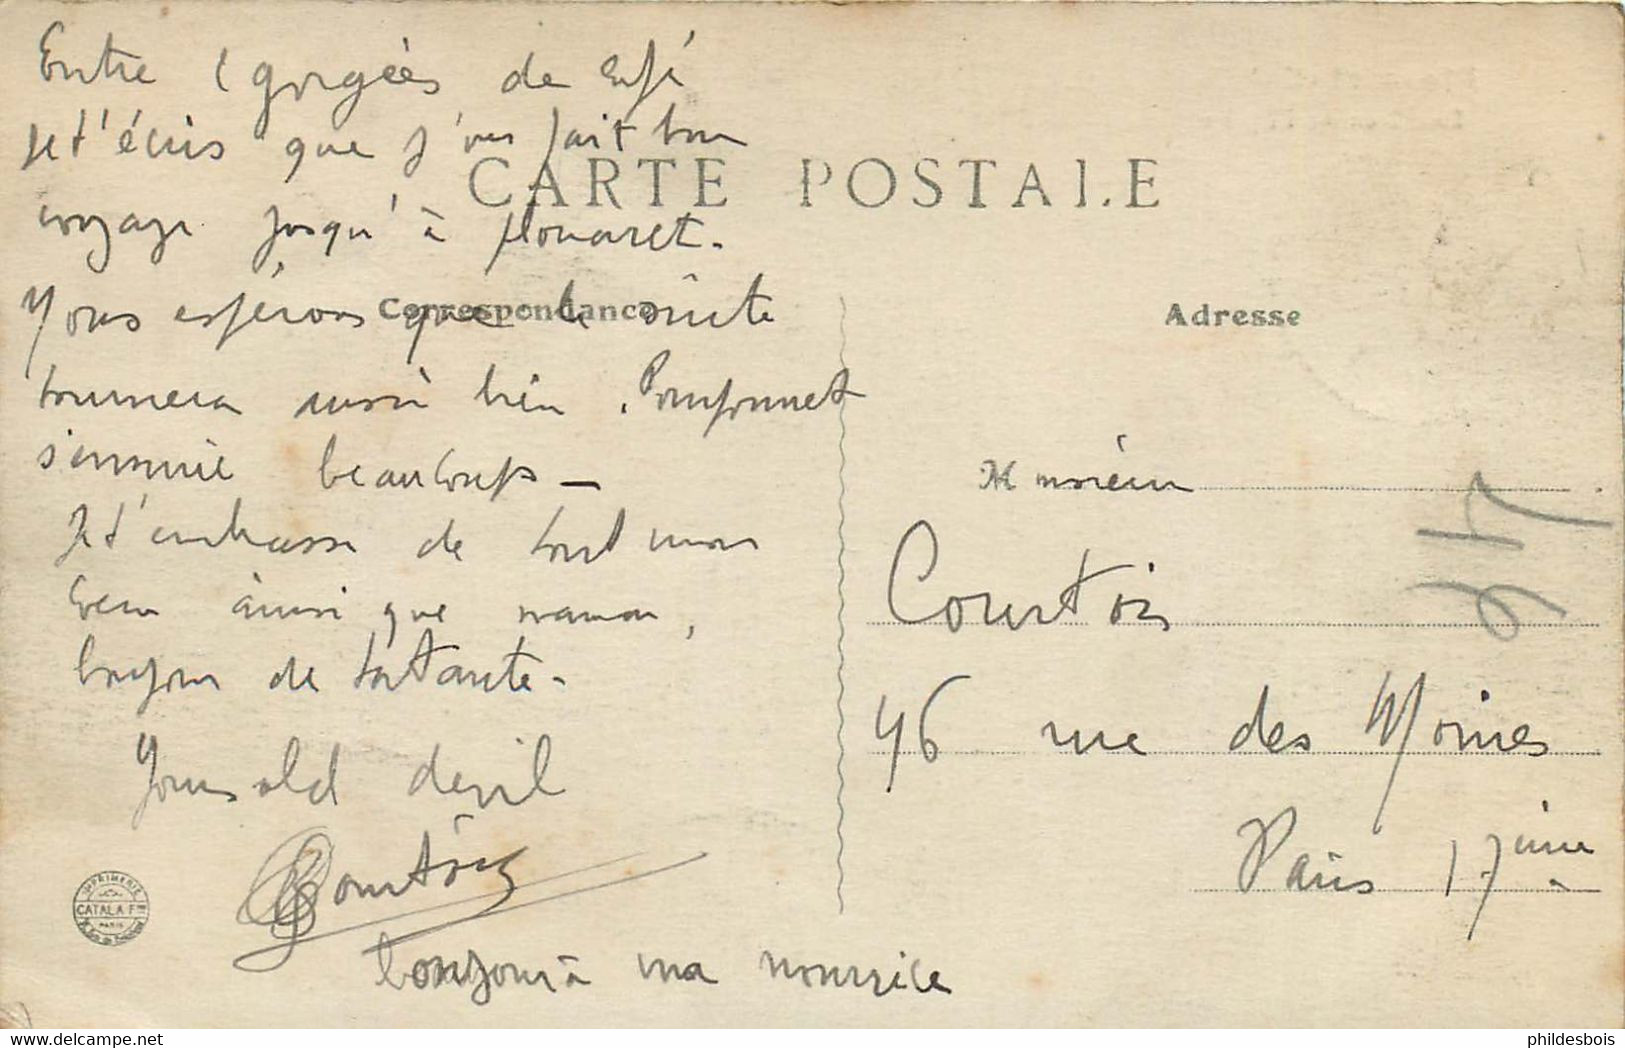 Entre 2 gorgées de café
Je t'écris que j'ons fait bon
voyage jusqu'à Plouaret.
Nous espérons que la suite
tournera aussi bien. Pomponnet
s'ennuie beaucoup —
Je t'embrasse de tout mon
cœur ainsi que maman,
bonjour de ta Tante -
Your old devil
bonjour à ma nourrice
CARTE POSTALE
Correspondance
Adresse
Monsieur
Courtois
46 rue des Moines
Paris 17ième
IMPRIMERIE
CATALA F
PARIS
phildesbois